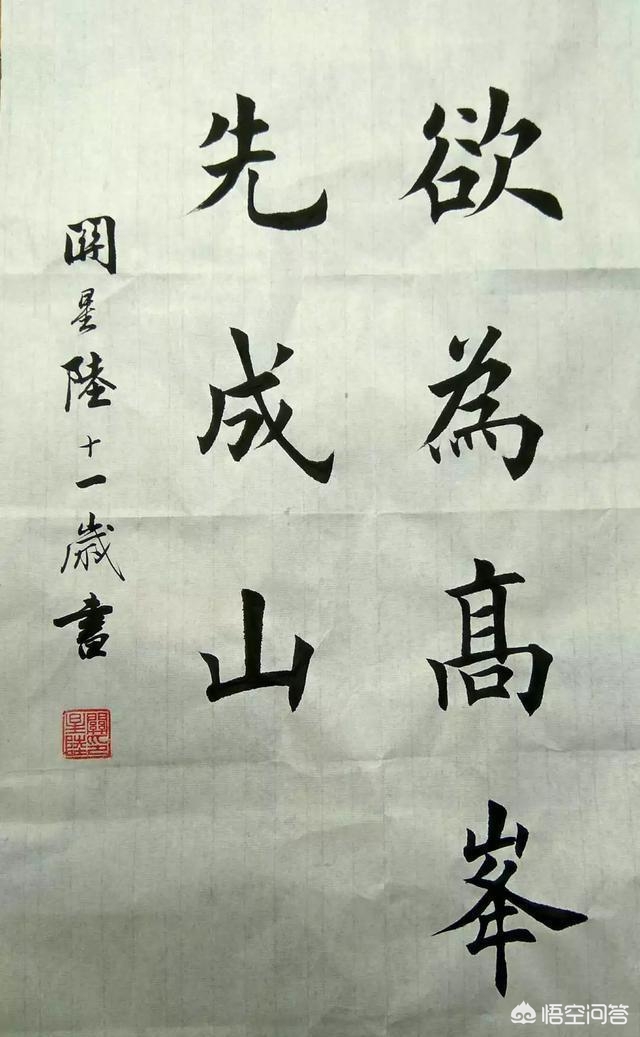 欲為髙峯
先成山
關星陸十一歲書
關星陸印
悟空问答